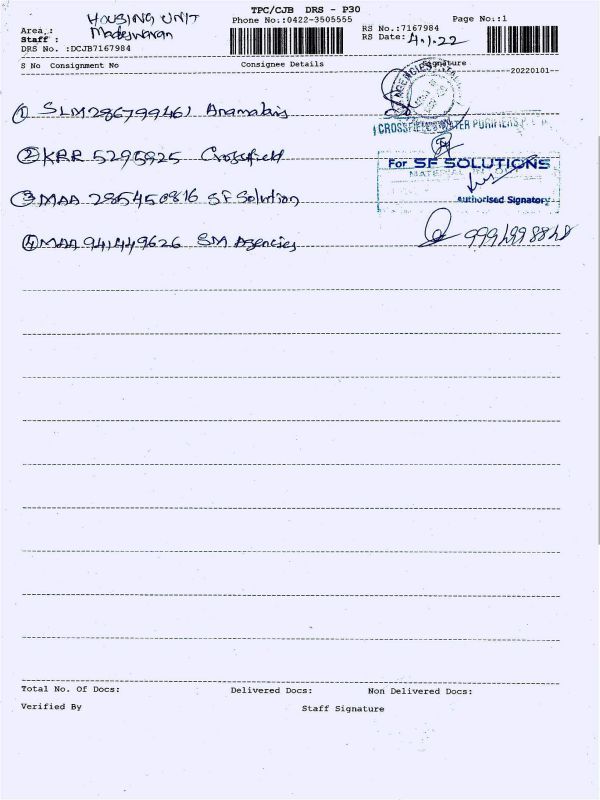 TPC/CJB DRS - P30
HOUSING UNIT
Phone No:0422-3505555
Page No:1
Area :
RS No.:7167984
Staff : Madeswaran
RS Date: 4.1.22
DRS No. :DCJB7167984
S No Consignment No Consignee Details Signature
20220101--
① SLM286799461 Anamalais
AGENCIES
② KRR 5295925 Crossfield
CROSSFIELDS WATER PURIFIERS P
③ MAA 285450816 SF Solution
For SF SOLUTIONS
MATERIAL IN
Authorised Signatory
④ MAA 941449626 SM Agencies
Total No. Of Docs: Delivered Docs: Non Delivered Docs:
Verified By Staff Signature